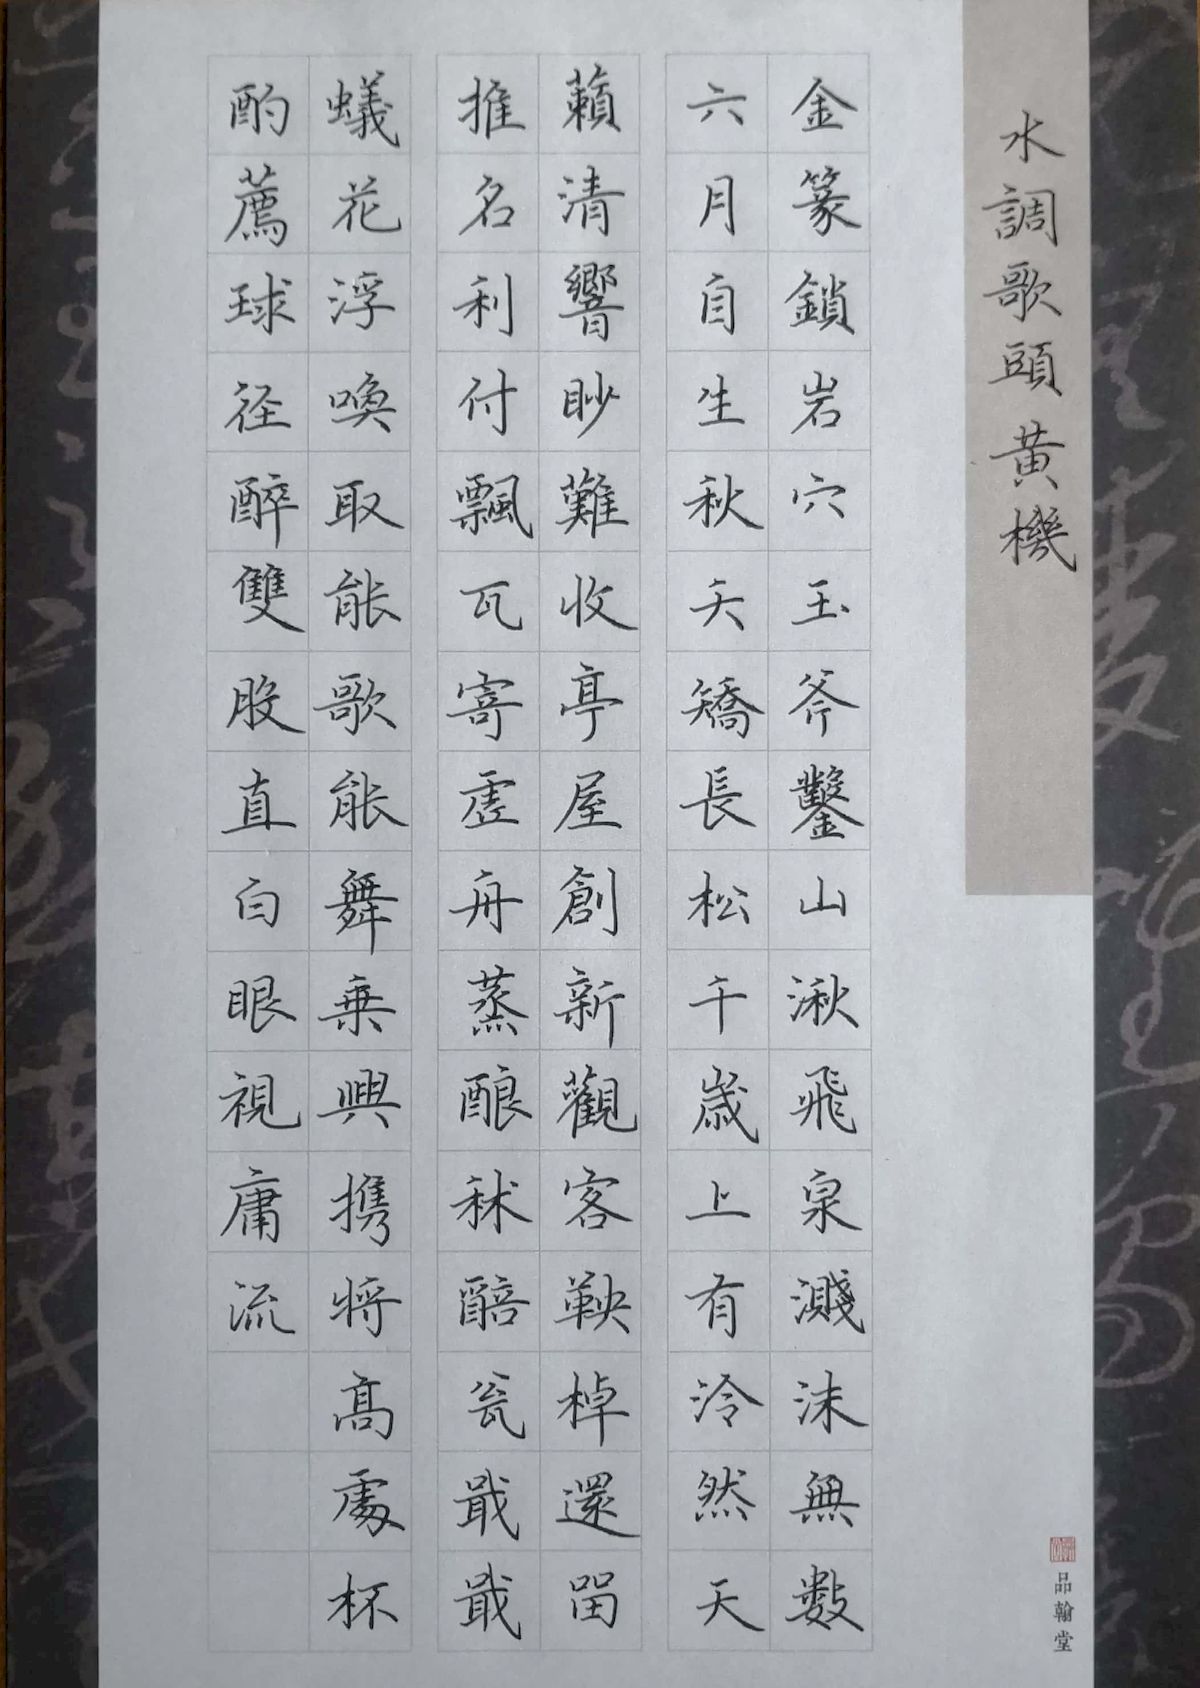 水調歌頭黃機
金篆鎖岩穴玉斧鑿山湫飛泉濺沫無數
六月自生秋夭矯長松千歲上有泠然天
藾清響眇難收亭屋創新觀客鞅棹還留
推名利付飄瓦寄虛舟蒸酿秫醅瓮戢戢
蟻花浮喚取能歌能舞乘興携將高處杯
酌薦球径醉雙股直白眼視庸流
品翰堂